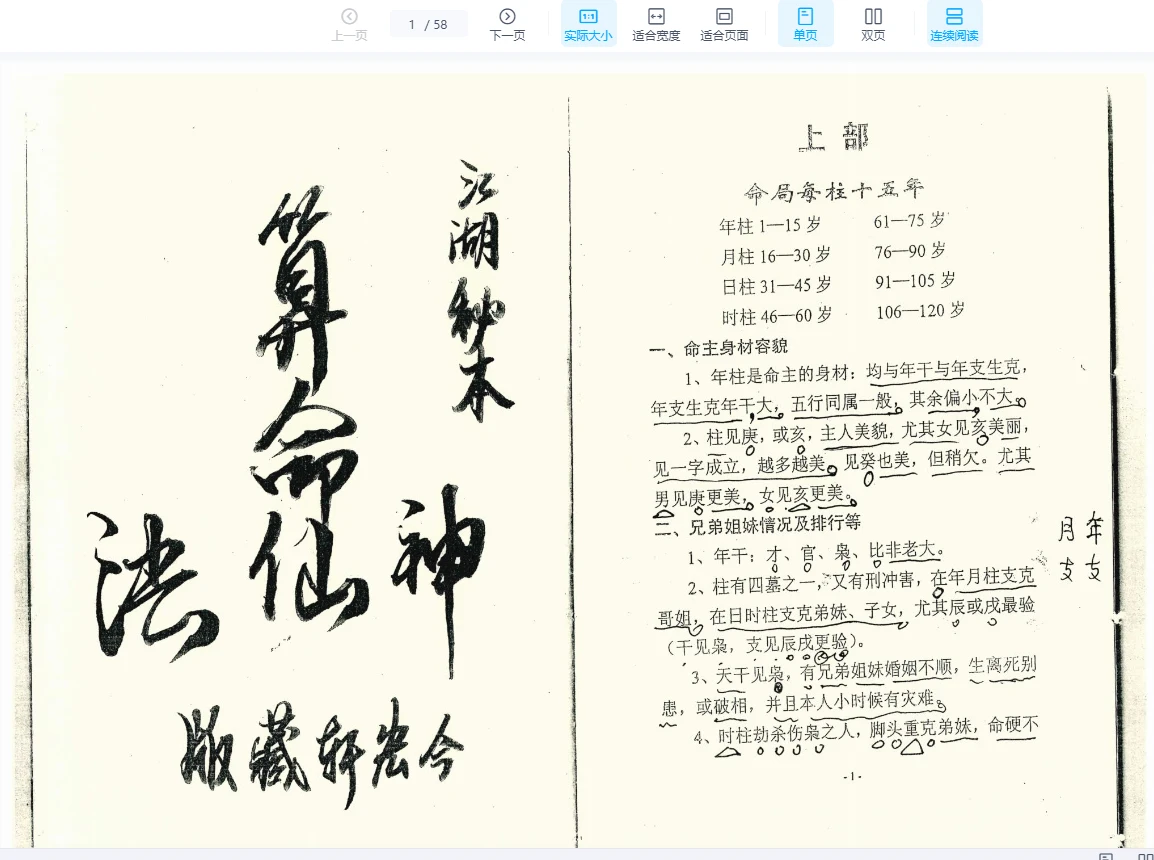 上一页
1 / 58
下一页
实际大小
适合宽度
适合页面
单页
双页
连续阅读
江湖秘本
算命
神仙法
今宏轩藏版
上部
命局每柱十五年
年柱 1—15 岁 61—75 岁
月柱 16—30 岁 76—90 岁
日柱 31—45 岁 91—105 岁
时柱 46—60 岁 106—120 岁
一、命主身材容貌
1、年柱是命主的身材：均与年干与年支生克，
年支生克年干大，五行同属一般，其余偏小不大。
2、柱见庚，或亥，主人美貌，尤其女见亥美丽，
见一字成立，越多越美。见癸也美，但稍欠。尤其
男见庚更美，女见亥更美。
二、兄弟姐妹情况及排行等
1、年干：才、官、枭、比非老大。
2、柱有四墓之一，又有刑冲害，在年月柱支克
哥姐，在日时柱支克弟妹、子女，尤其辰或戌最验
（干见枭，支见辰戌更验）。
3、天干见枭，有兄弟姐妹婚姻不顺，生离死别
患，或破相，并且本人小时候有灾难。
4、时柱劫杀伤枭之人，脚头重克弟妹，命硬不
年支
月支
-1-